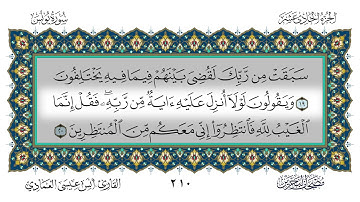 الجزء الحادي عشر
سورة يونس
سَبَقَتْ مِن رَّبِّكَ لَقُضِىَ بَيْنَهُمْ فِيمَا فِيهِ يَخْتَلِفُونَ
١٩ وَيَقُولُونَ لَوْلَآ أُنزِلَ عَلَيْهِ ءَايَةٌ مِّن رَّبِّهِۦ ۖ فَقُلْ إِنَّمَا
ٱلْغَيْبُ لِلَّهِ فَٱنتَظِرُوٓا۟ إِنِّى مَعَكُم مِّنَ ٱلْمُنتَظِرِينَ ٢٠
القارئ أنس عيسى العمادي
٢١٠